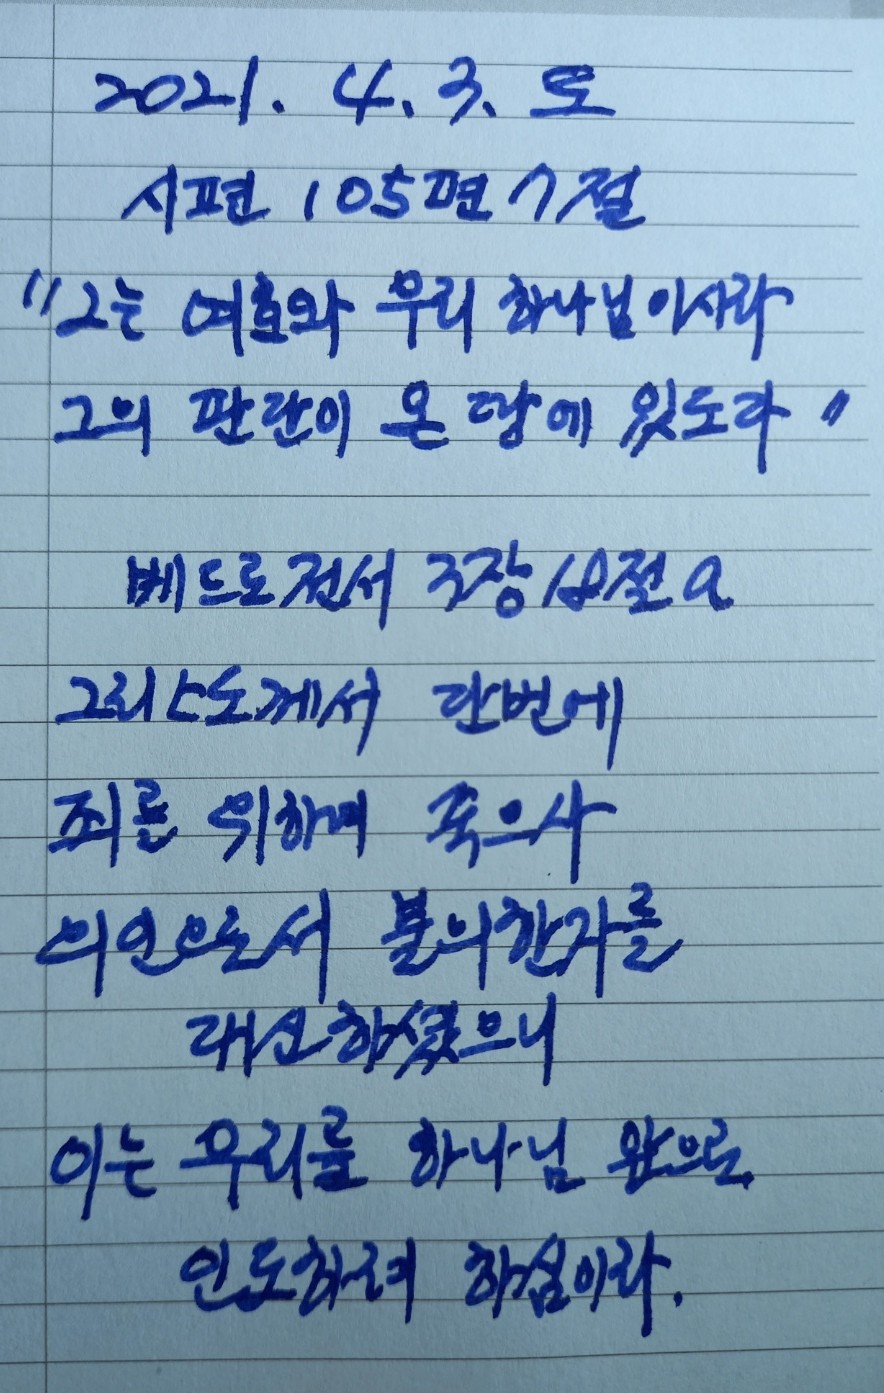 2021. 4. 3. 토
시편 105편 7절
"그는 여호와 우리 하나님이시라
그의 판단이 온 땅에 있도다"
베드로전서 3장 18절a
그리스도께서 단번에
죄를 위하여 죽으사
의인으로서 불의한자를
대신하셨으니
이는 우리를 하나님 앞으로
인도하려 하심이라.